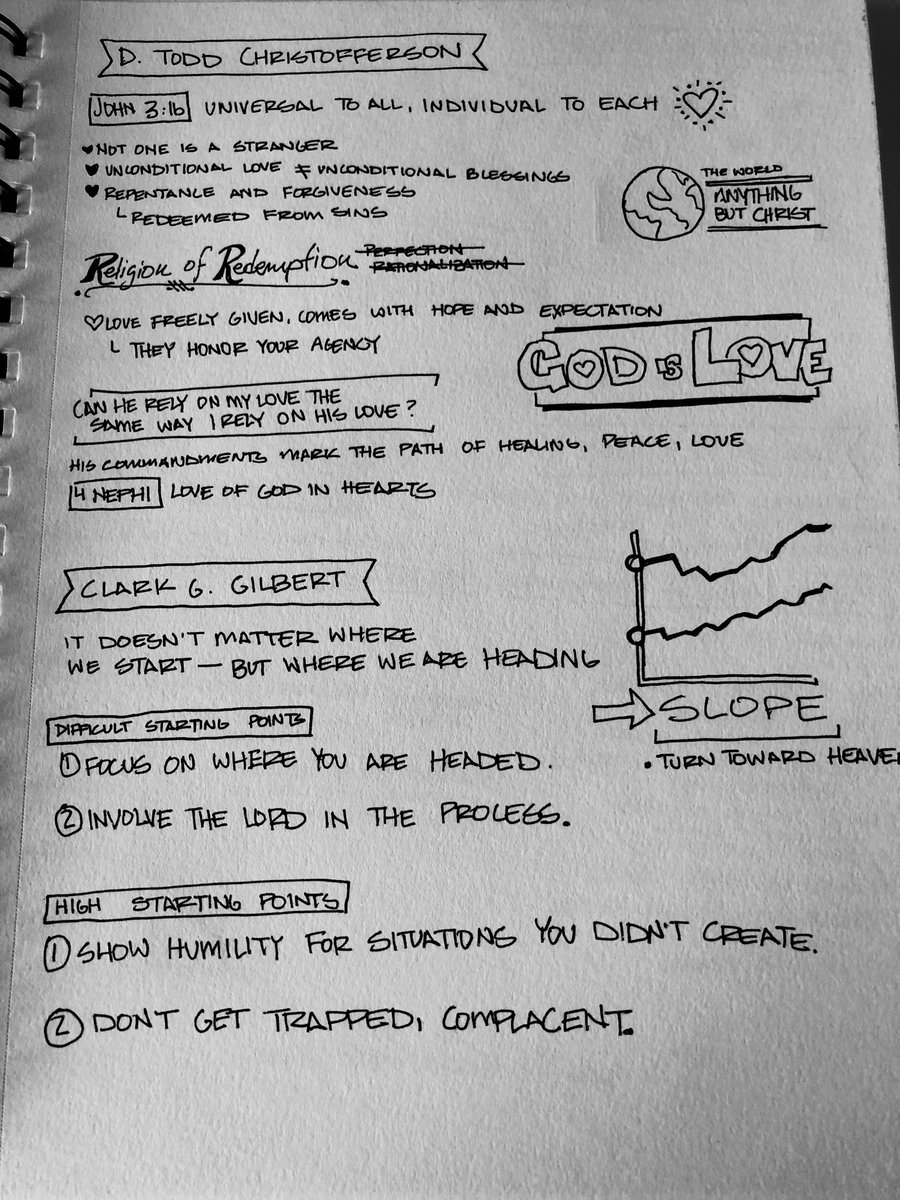 D. TODD CHRISTOFFERSON
JOHN 3:16 UNIVERSAL TO ALL, INDIVIDUAL TO EACH
NOT ONE IS A STRANGER
UNCONDITIONAL LOVE ≠ UNCONDITIONAL BLESSINGS
REPENTANCE AND FORGIVENESS
REDEEMED FROM SINS
THE WORLD
ANYTHING
BUT CHRIST
Religion of Redemption
PERFECTION
RATIONALIZATION
LOVE FREELY GIVEN, COMES WITH HOPE AND EXPECTATION
THEY HONOR YOUR AGENCY
GOD IS LOVE
CAN HE RELY ON MY LOVE THE
SAME WAY I RELY ON HIS LOVE?
HIS COMMANDMENTS MARK THE PATH OF HEALING, PEACE, LOVE
4 NEPHI LOVE OF GOD IN HEARTS
CLARK G. GILBERT
IT DOESN'T MATTER WHERE
WE START — BUT WHERE WE ARE HEADING
SLOPE
• TURN TOWARD HEAVEN
DIFFICULT STARTING POINTS
① FOCUS ON WHERE YOU ARE HEADED.
② INVOLVE THE LORD IN THE PROCESS.
HIGH STARTING POINTS
① SHOW HUMILITY FOR SITUATIONS YOU DIDN'T CREATE.
② DON'T GET TRAPPED, COMPLACENT.